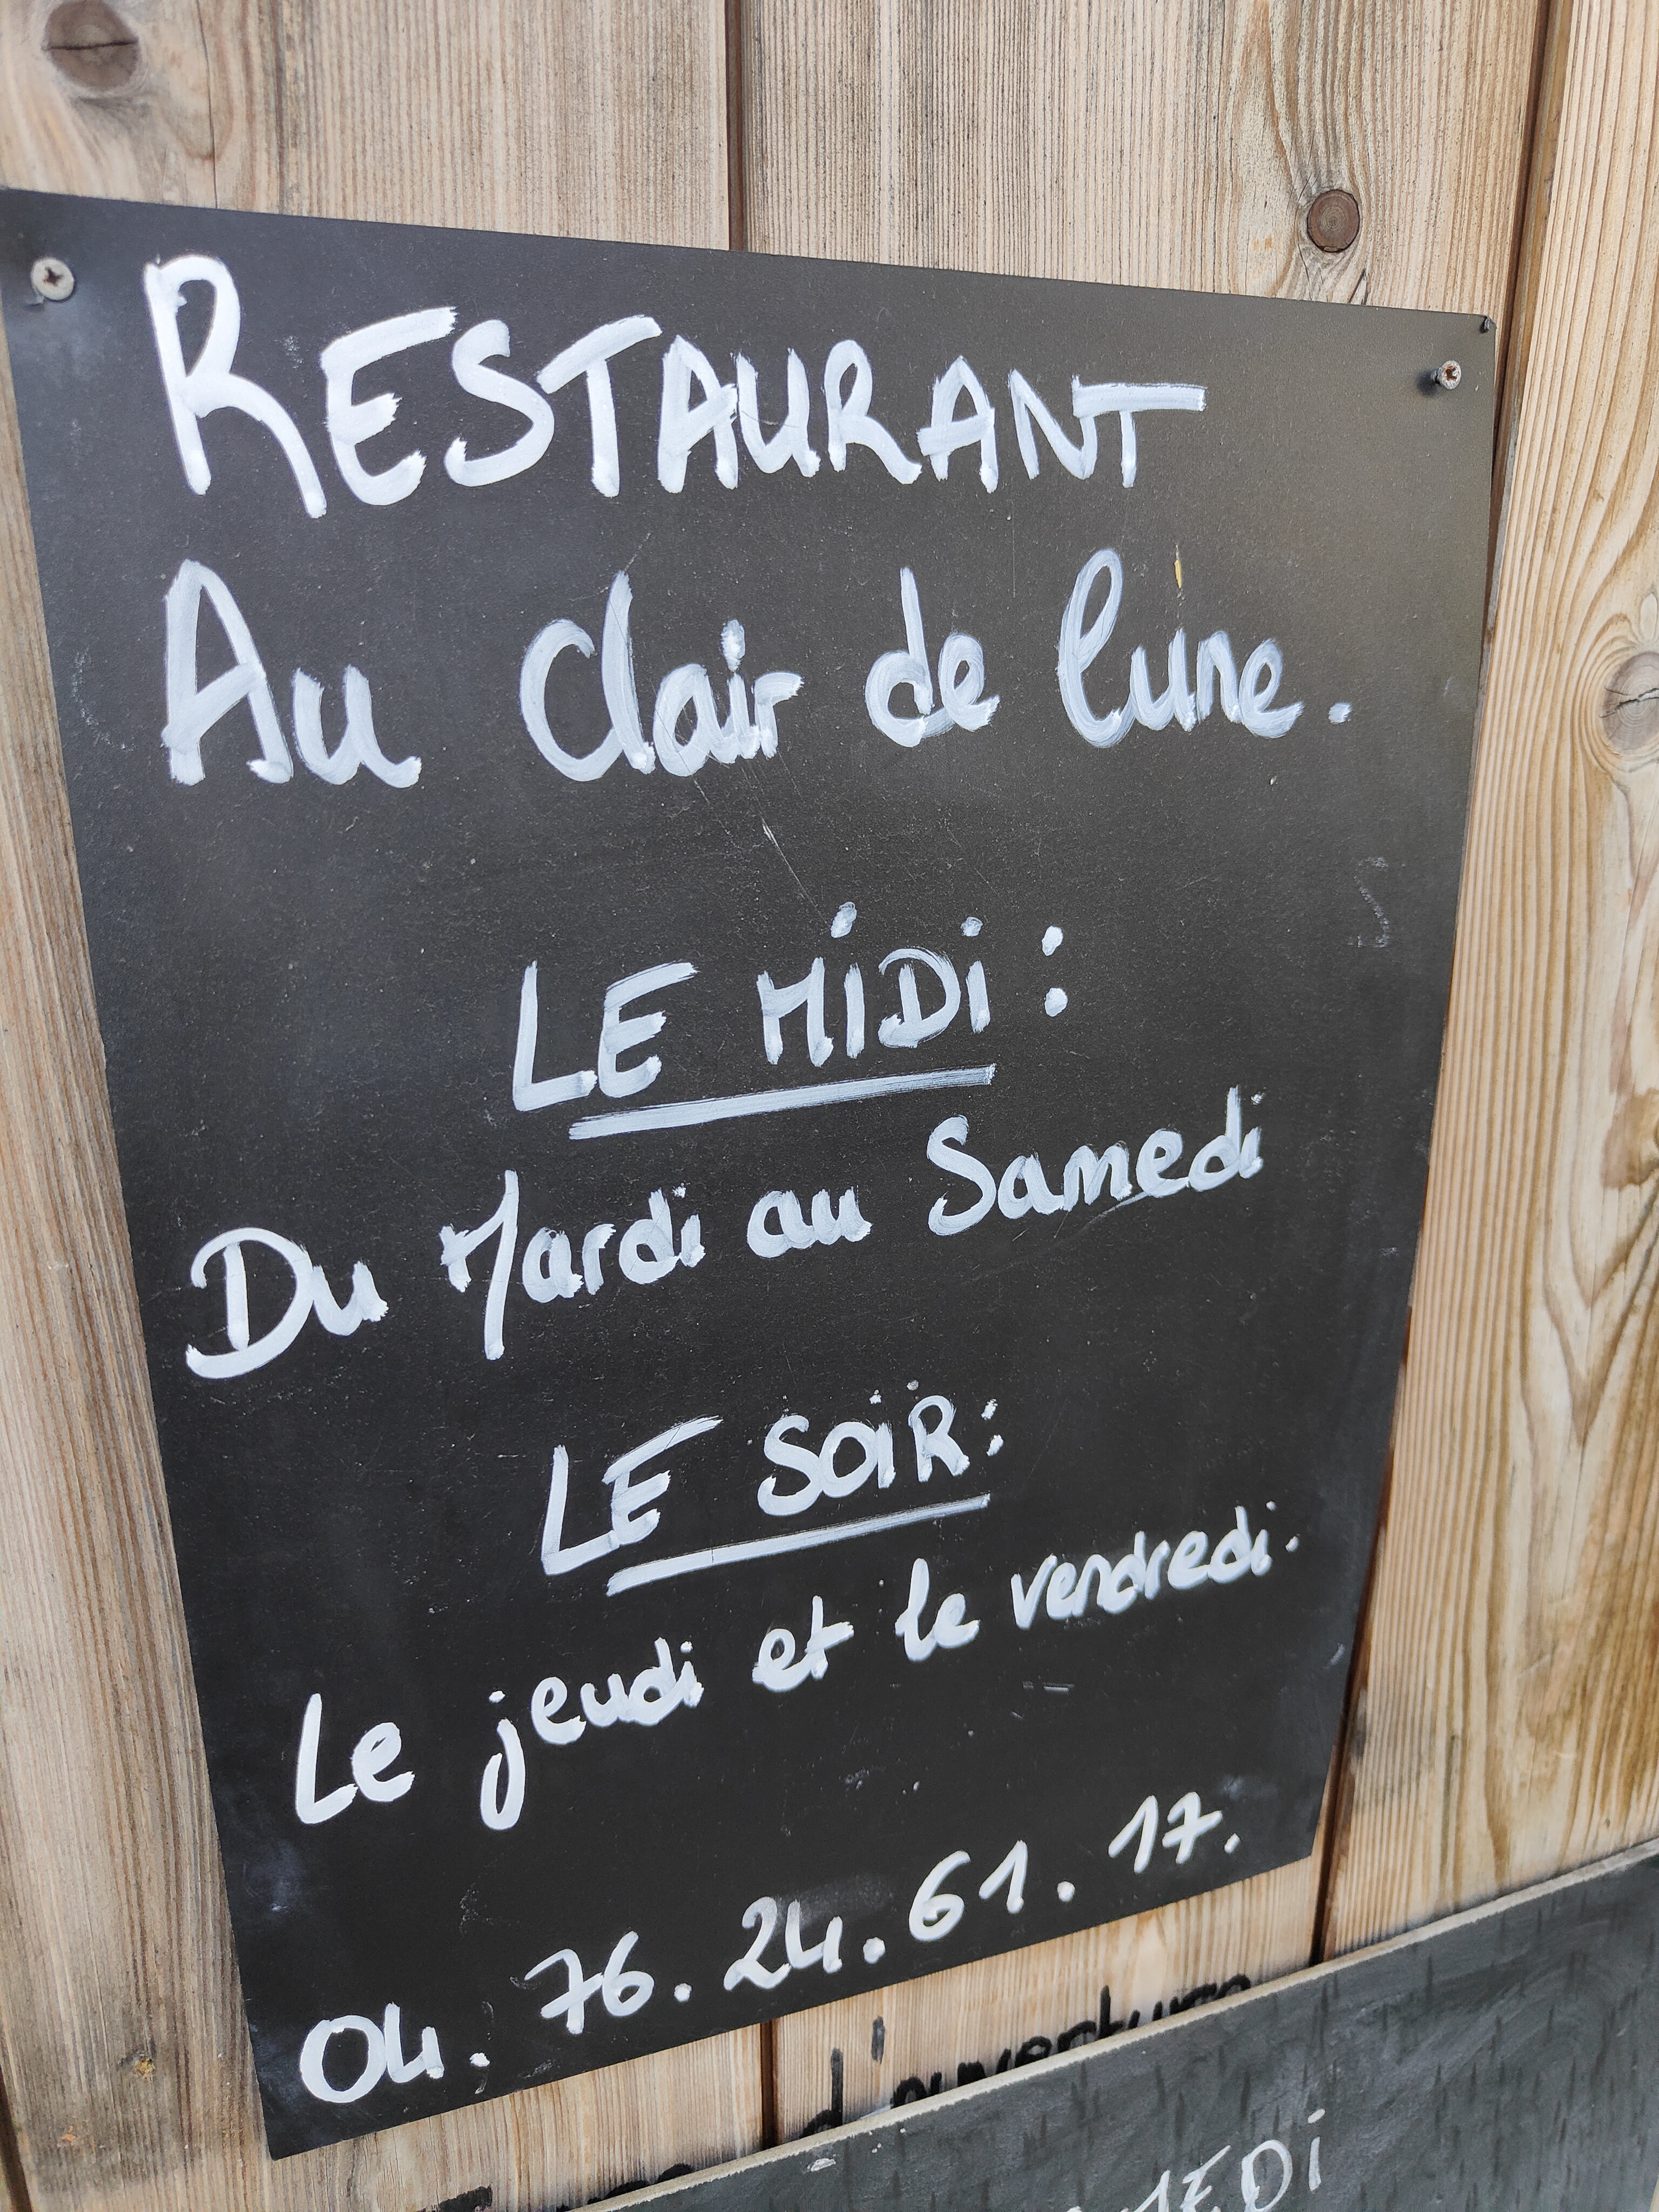 RESTAURANT
Au Clair de lune.
LE MiDi :
Du Mardi au Samedi
LE SOiR :
Le jeudi et le vendredi.
04. 76. 24. 61. 17.
d'ouverture